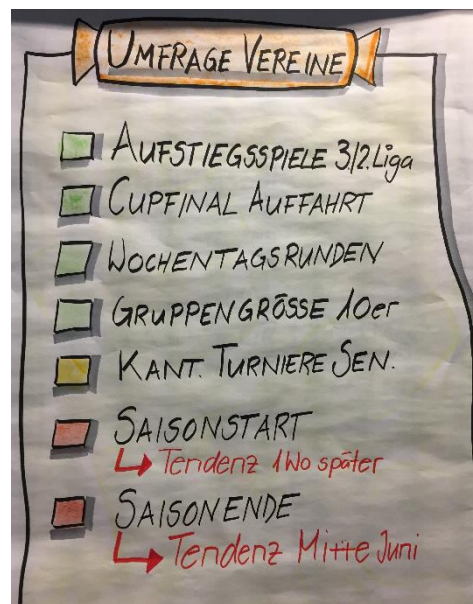 UMFRAGE VEREINE
AUFSTIEGSSPIELE 3./2. Liga
CUPFINAL AUFFAHRT
WOCHENTAGSRUNDEN
GRUPPENGRÖSSE 10er
KANT. TURNIERE SEN.
SAISONSTART
Tendenz 1 Wo später
SAISONENDE
Tendenz Mitte Juni